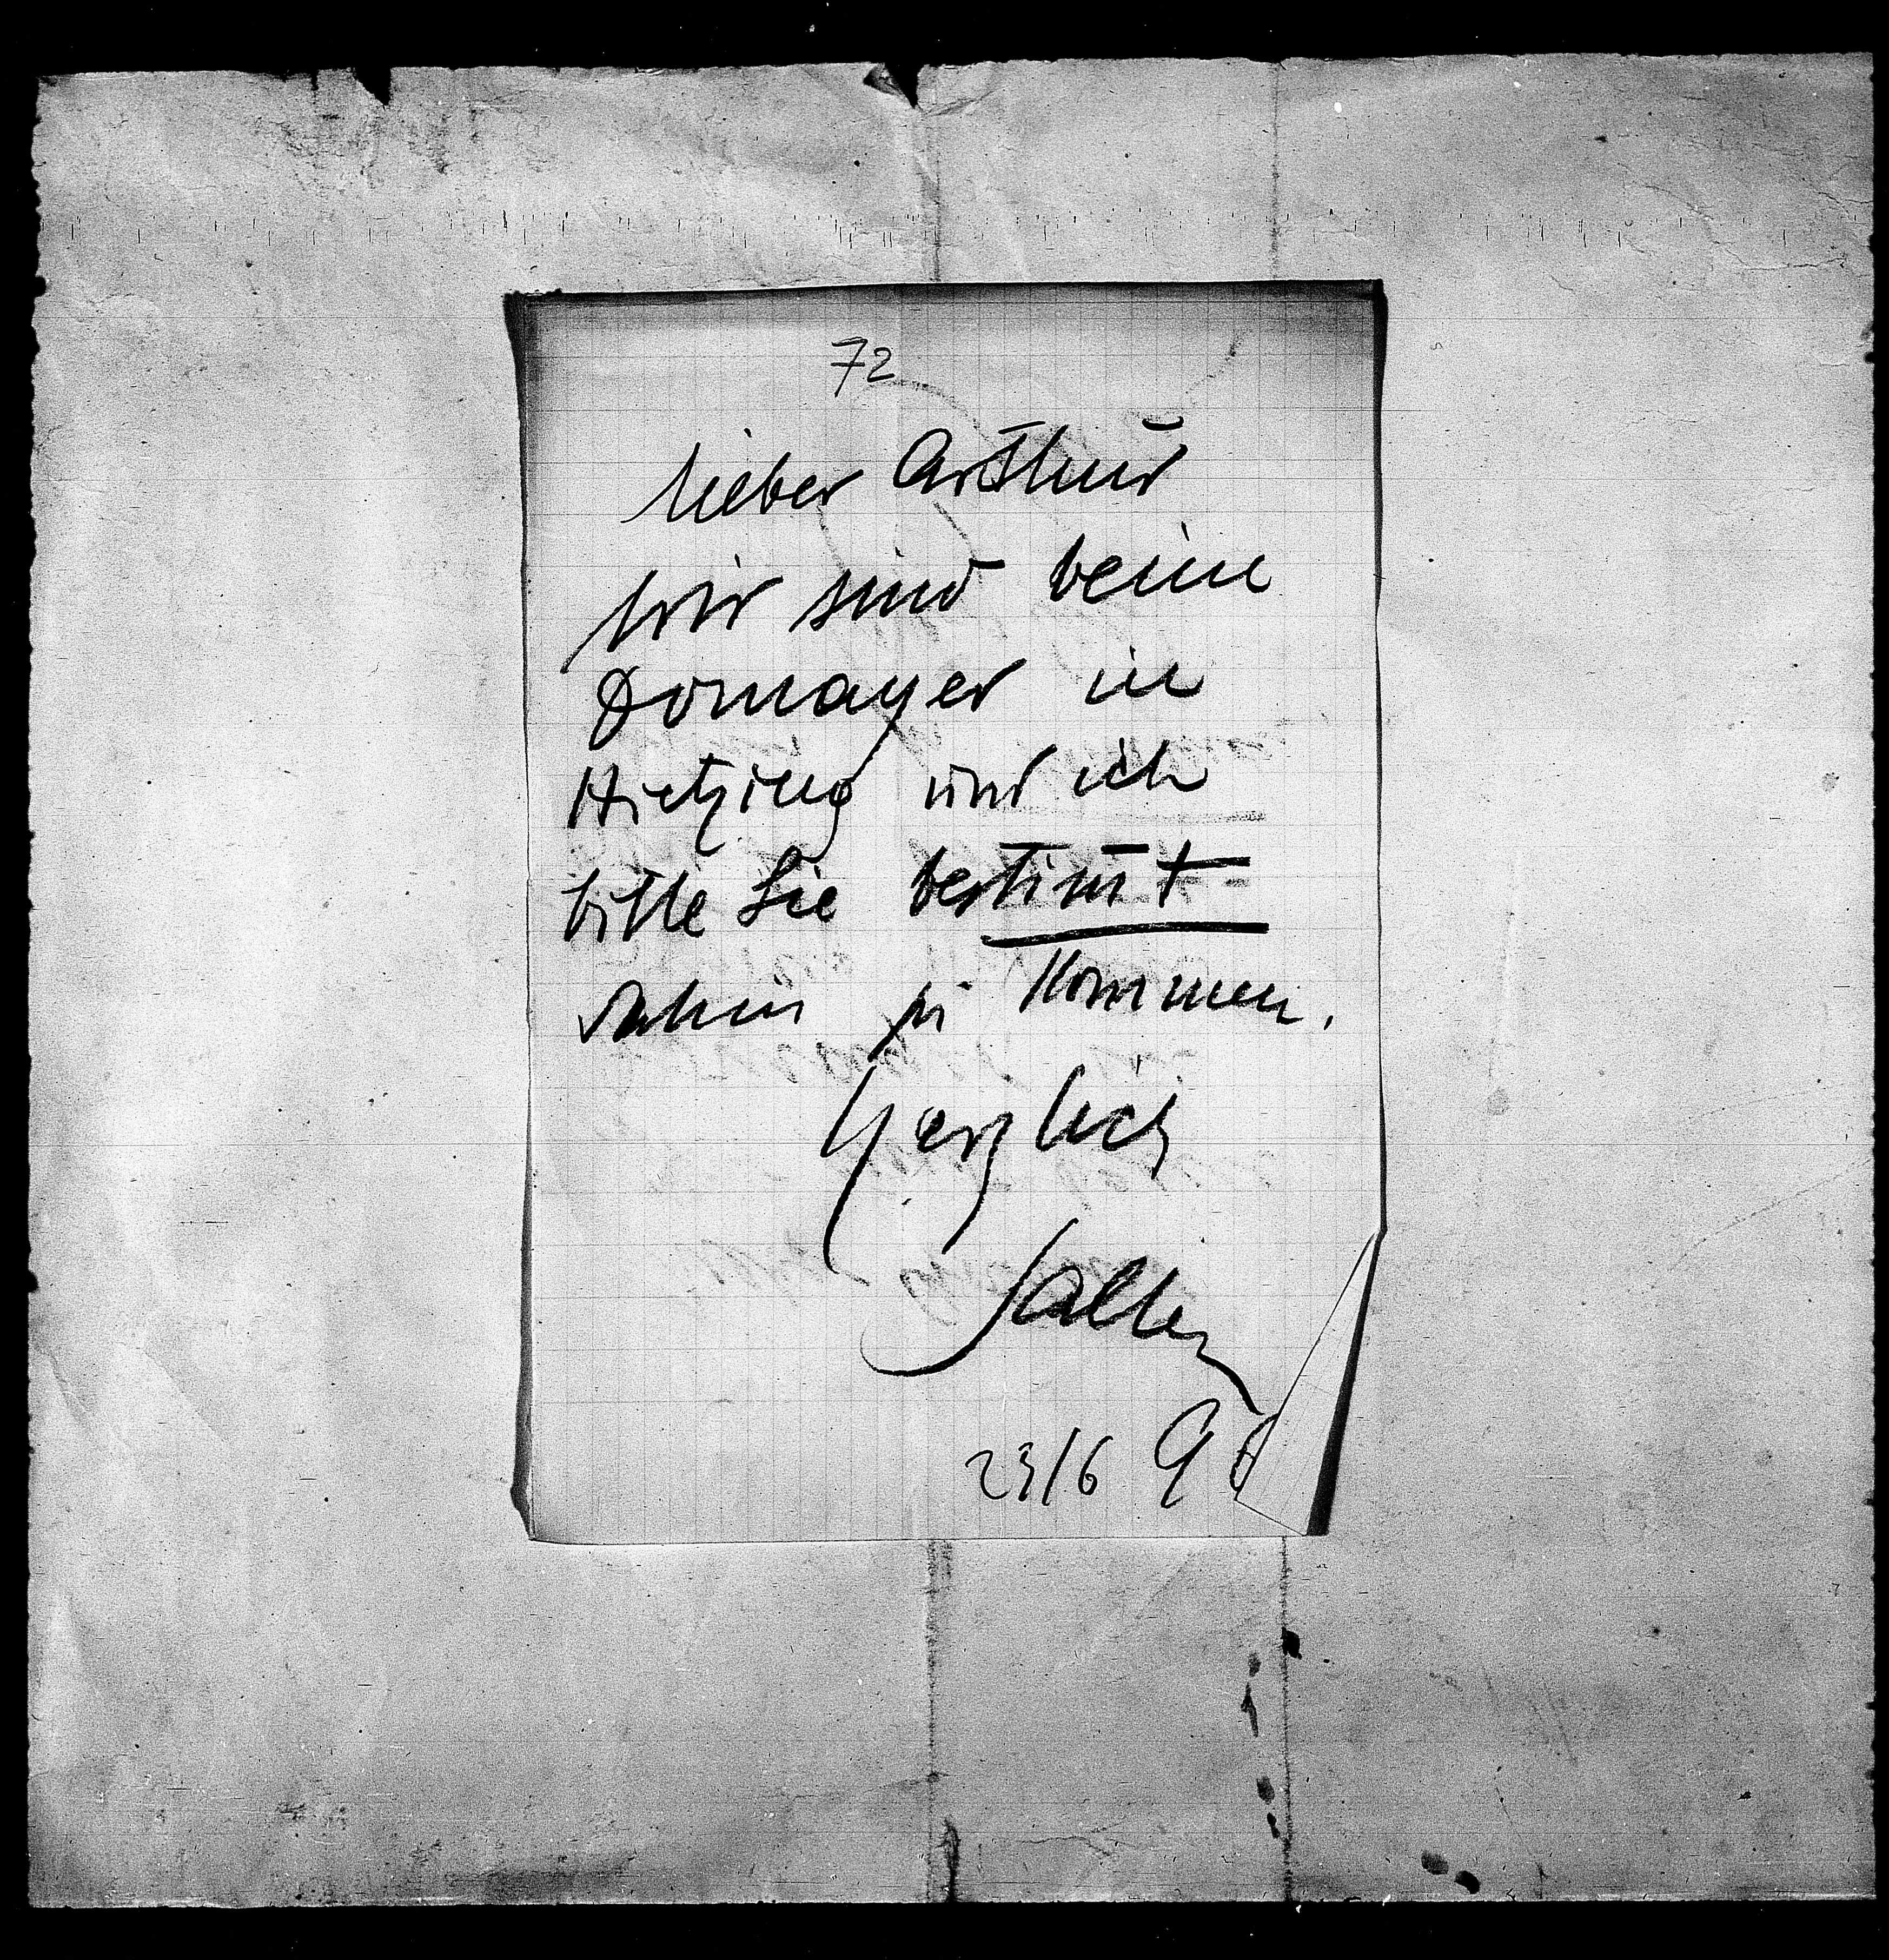 72
lieber Arthur
wir sind beim
Domayer in
Hietzing und ich
bitte Sie bestim̄t
dahin zu kommen.
Herzlich
Salten
23/6 96